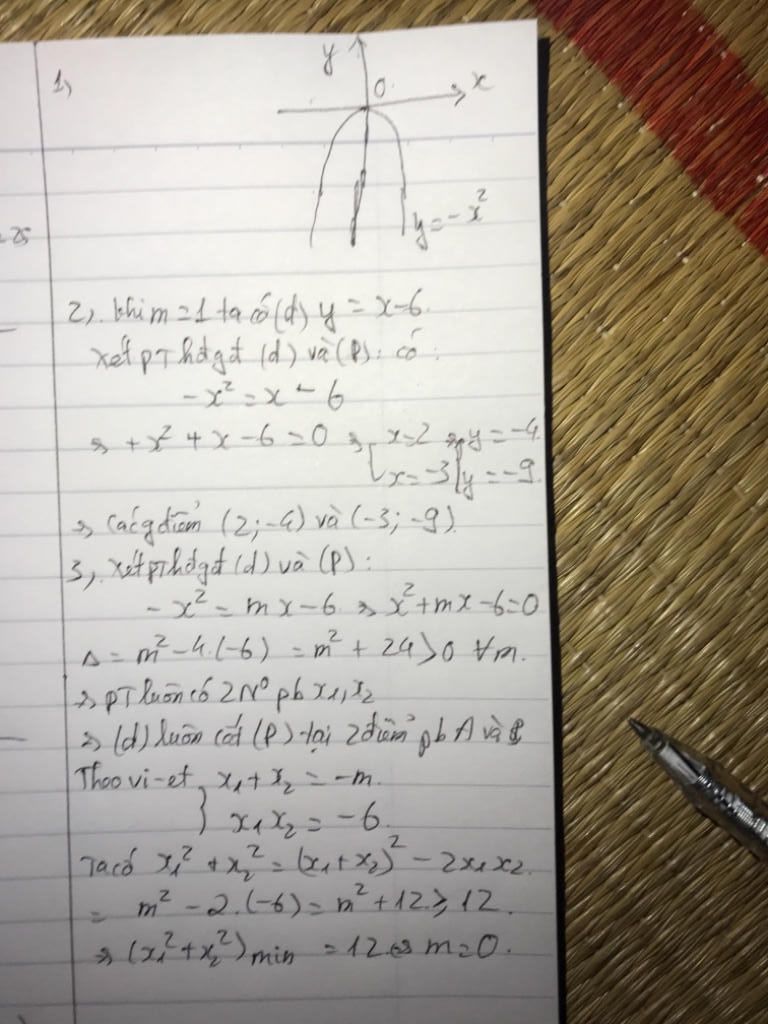 1)
y
O
x
y = -x²
-25
2). khi m = 1 ta có (d) y = x - 6
Xét pT hđgđ (d) và (P): có:
-x² = x - 6
⇒ +x² + x - 6 = 0 ⇒ [x = 2 ⇒ y = -4
[x = -3 | y = -9.
⇒ các gđiểm (2; -4) và (-3; -9)
3, xét pThđgđ (d) và (P):
-x² = mx - 6 ⇒ x² + mx - 6 = 0
Δ = m² - 4.(-6) = m² + 24 > 0 ∀m.
⇒ pT luôn có 2 N° pb x₁, x₂
⇒ (d) luôn cắt (P) tại 2 điểm pb A và B
Theo vi-et } x₁ + x₂ = -m.
x₁x₂ = -6
Ta có x₁² + x₂² = (x₁ + x₂)² - 2x₁x₂.
= m² - 2.(-6) = m² + 12 ≥ 12.
⇒ (x₁² + x₂²)min = 12 ⇔ m = 0.